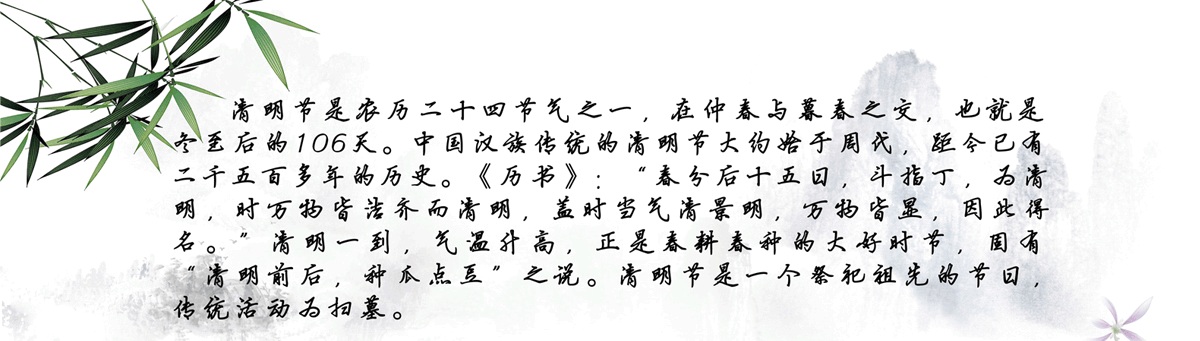 清明节是农历二十四节气之一，在仲春与暮春之交，也就是
冬至后的106天。中国汉族传统的清明节大约始于周代，距今已有
二千五百多年的历史。《历书》：“春分后十五日，斗指丁，为清
明，时万物皆洁齐而清明，盖时当气清景明，万物皆显，因此得
名。”清明一到，气温升高，正是春耕春种的大好时节，固有
“清明前后，种瓜点豆”之说。清明节是一个祭祀祖先的节日，
传统活动为扫墓。